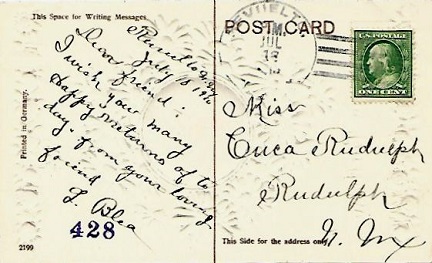 This Space for Writing Messages
Dear friend:
I wish you many
Happy returns of to
day. from your loving
friend
L. Blea
428
2199
Printed in Germany.
POST CARD
JUL
U.S. POSTAGE
ONE CENT
Miss
Cuca Rudulph
Rudulph
N. Mx
This Side for the address only